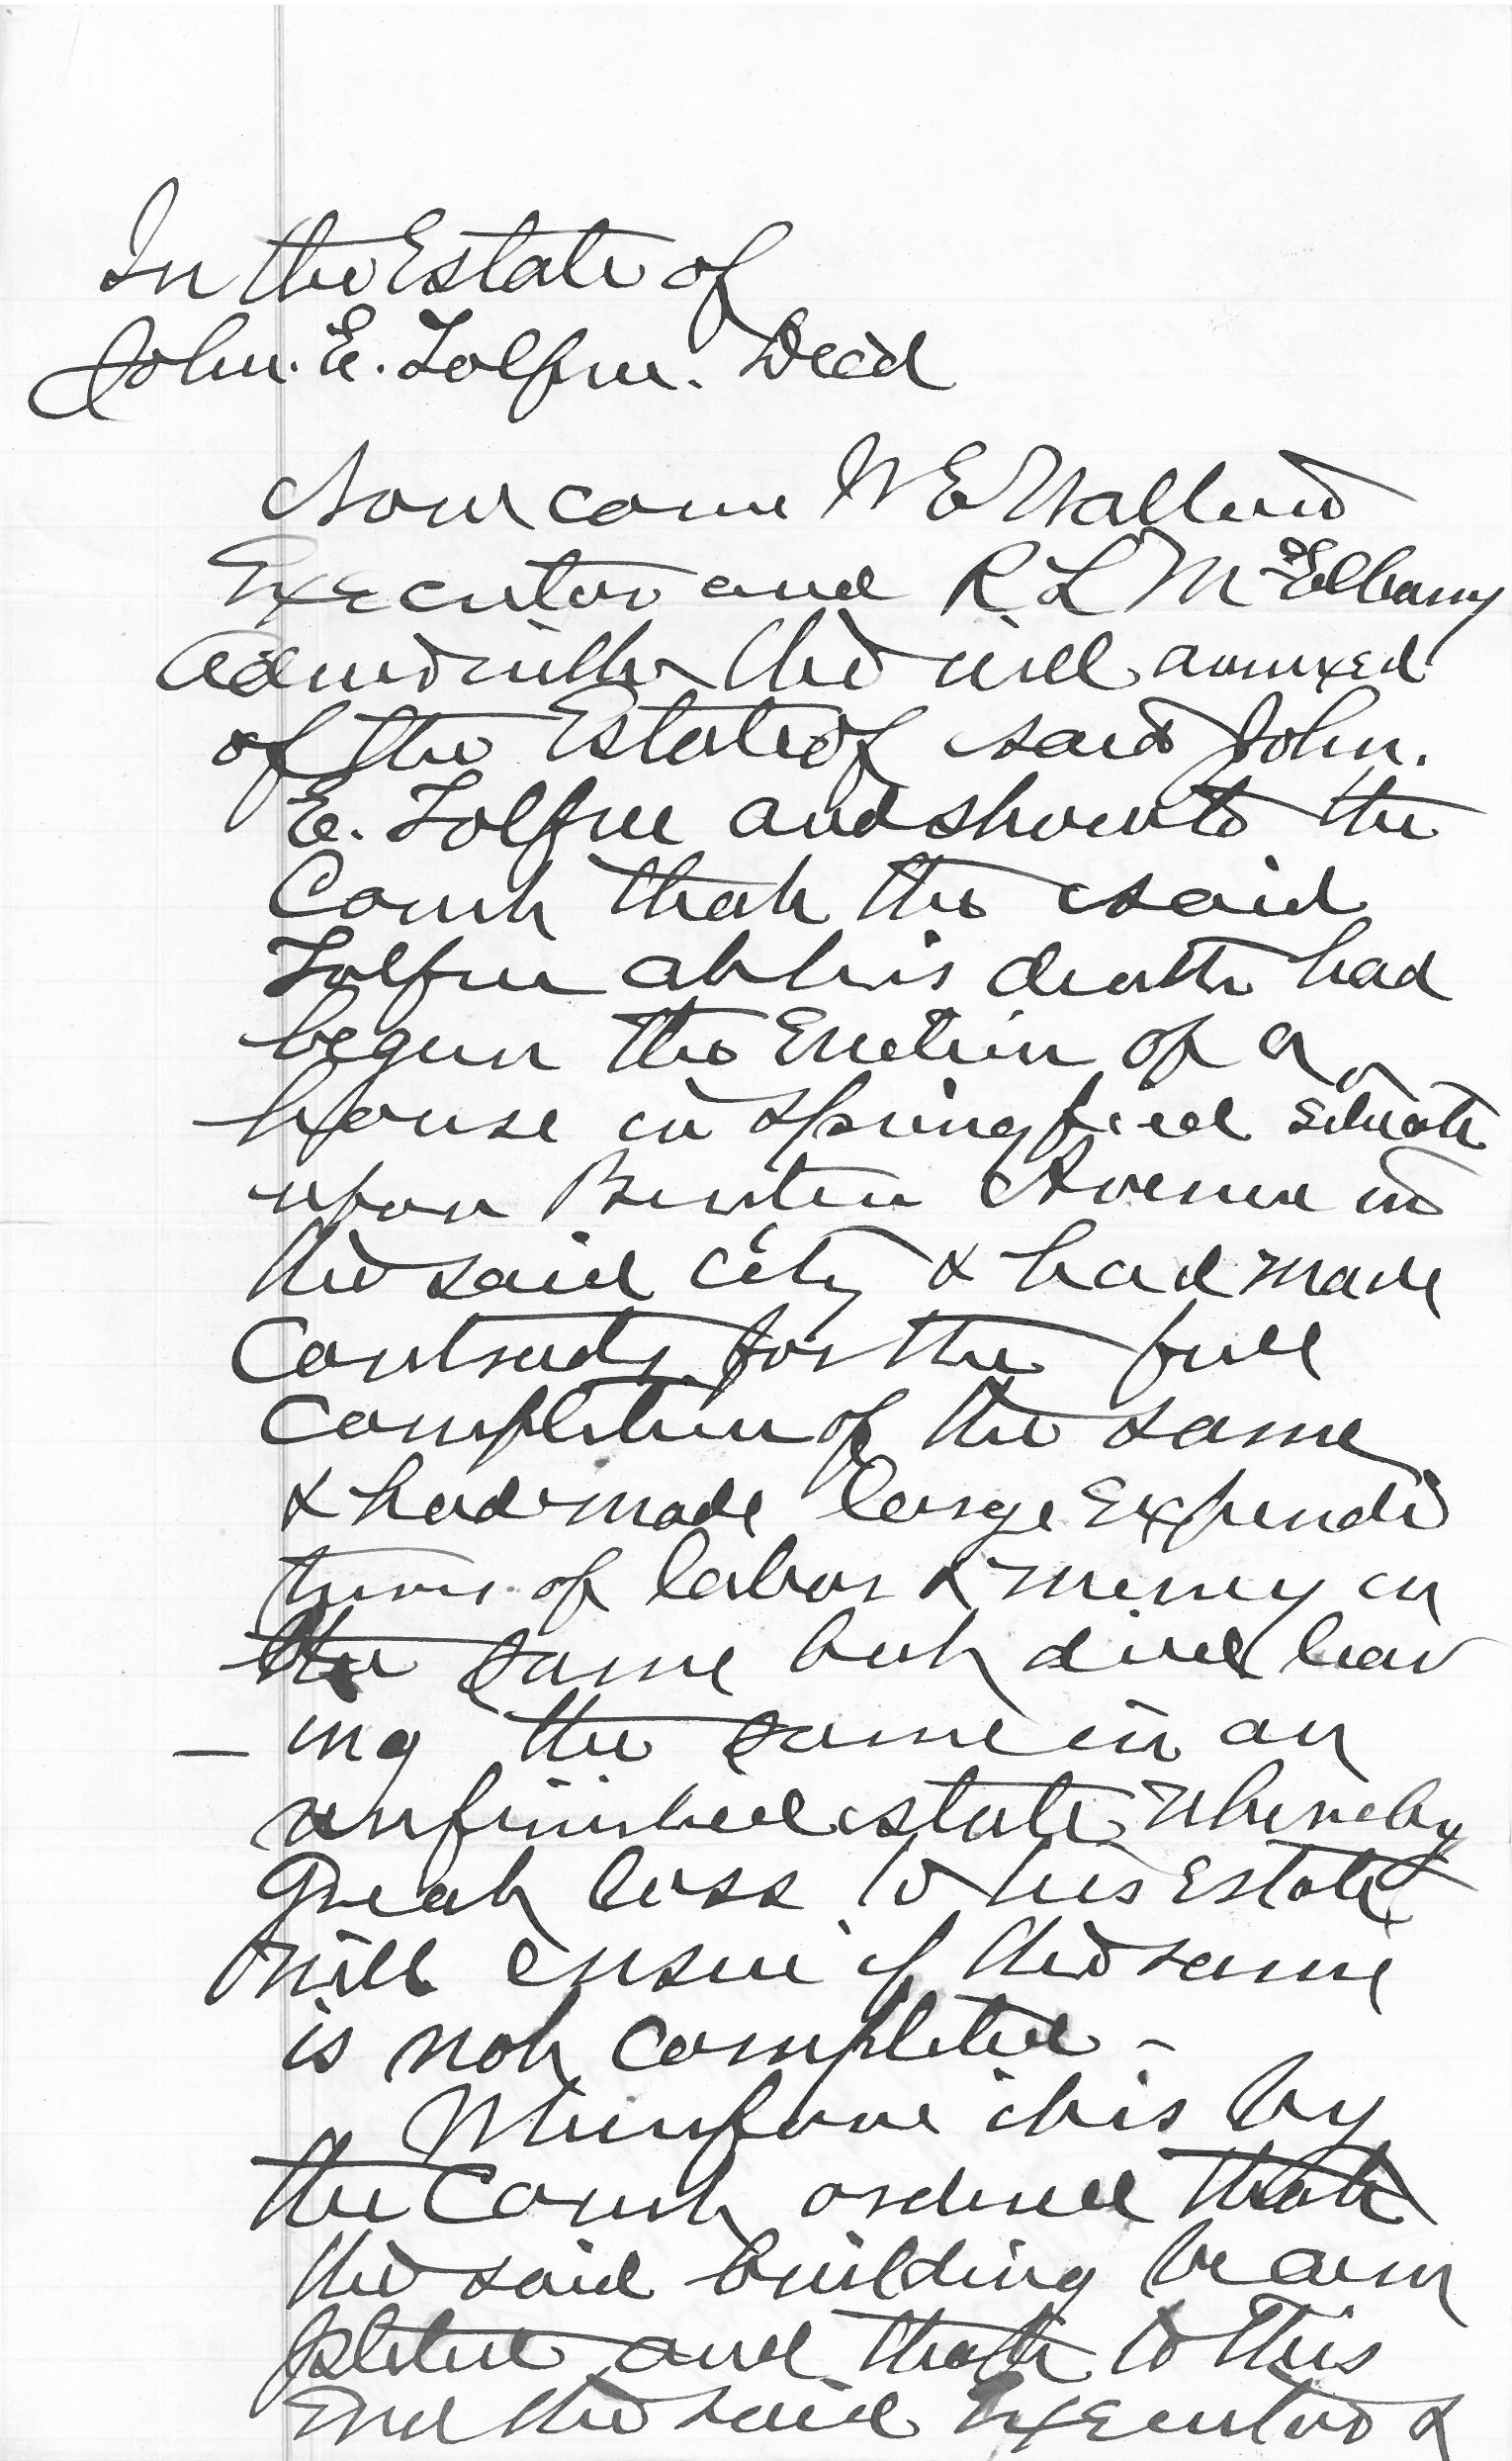 In the Estate of
John. E. Tolfree. Decd
Now come W E
Executor and R L McElhany
Admr with the will annexed
of the Estate of said John.
E. Tolfree and show to the
Court that the said
Tolfree at his death had
begun the Erection of a
house in Springfield situate
upon Benton Avenue in
the said city & had made
Contracts for the full
Completion of the same
& had made large Expendi
tures of labor & money in
the same but died leav
- ing the same in an
unfinished state, whereby
Great loss to his Estate
will ensue if the same
is not completed -
Wherefore it is by
the Court ordered that
the said building be com
pleted and that to this
End the said Executor &